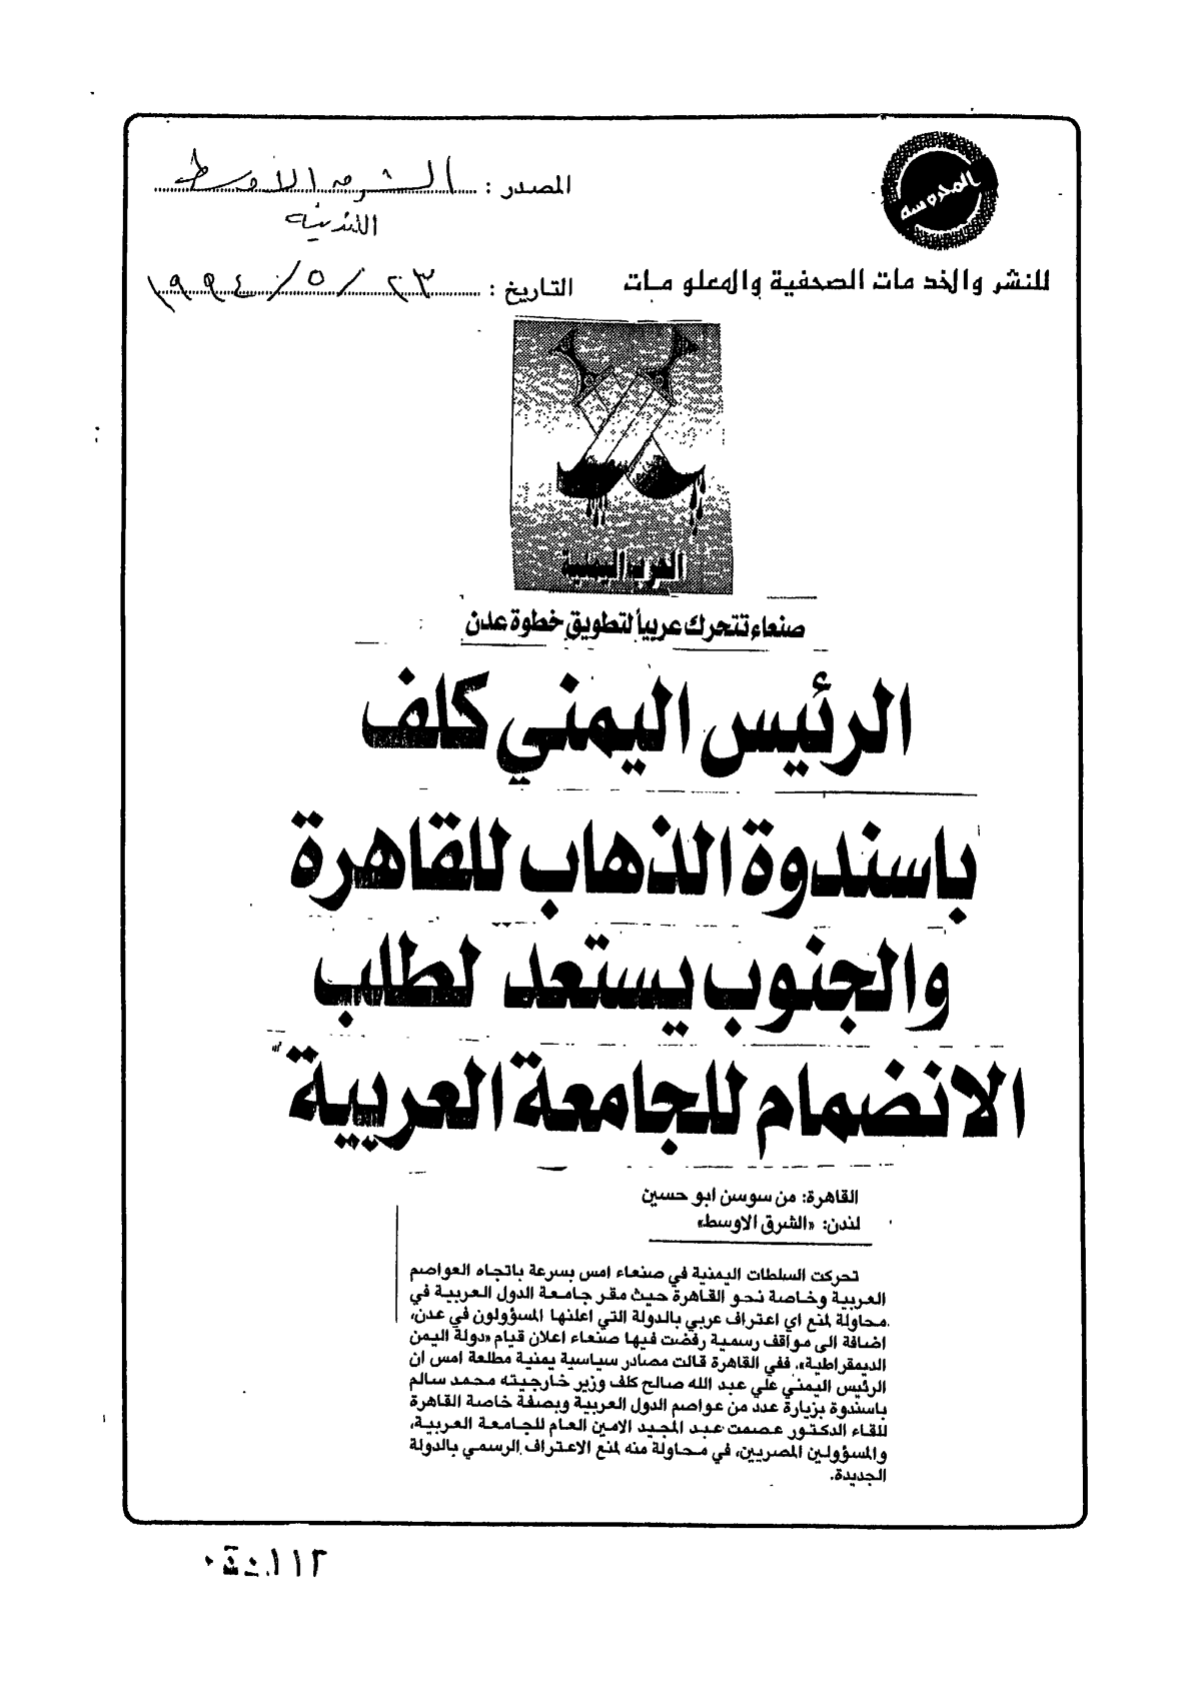 المحروسة
المصدر : الشرق الأوسط
اللندنية
للنشر والخدمات الصحفية والمعلومات
التاريخ : ٢٣ / ٥ / ١٩٩٤
الحرب اليمنية
صنعاء تتحرك عربياً لتطويق خطوة عدن
الرئيس اليمني كلف
باسندوة الذهاب للقاهرة
والجنوب يستعد لطلب
الانضمام للجامعة العربية
القاهرة: من سوسن ابو حسين
لندن: «الشرق الاوسط»
تحركت السلطات اليمنية في صنعاء امس بسرعة باتجاه العواصم
العربية وخاصة نحو القاهرة حيث مقر جامعة الدول العربية في
محاولة لمنع اي اعتراف عربي بالدولة التي اعلنها المسؤولون في عدن،
اضافة الى مواقف رسمية رفضت فيها صنعاء اعلان قيام «دولة اليمن
الديمقراطية». ففي القاهرة قالت مصادر سياسية يمنية مطلعة امس ان
الرئيس اليمني علي عبد الله صالح كلف وزير خارجيته محمد سالم
باسندوة بزيارة عدد من عواصم الدول العربية وبصفة خاصة القاهرة
للقاء الدكتور عصمت عبد المجيد الامين العام للجامعة العربية،
والمسؤولين المصريين، في محاولة منه لمنع الاعتراف الرسمي بالدولة
الجديدة.